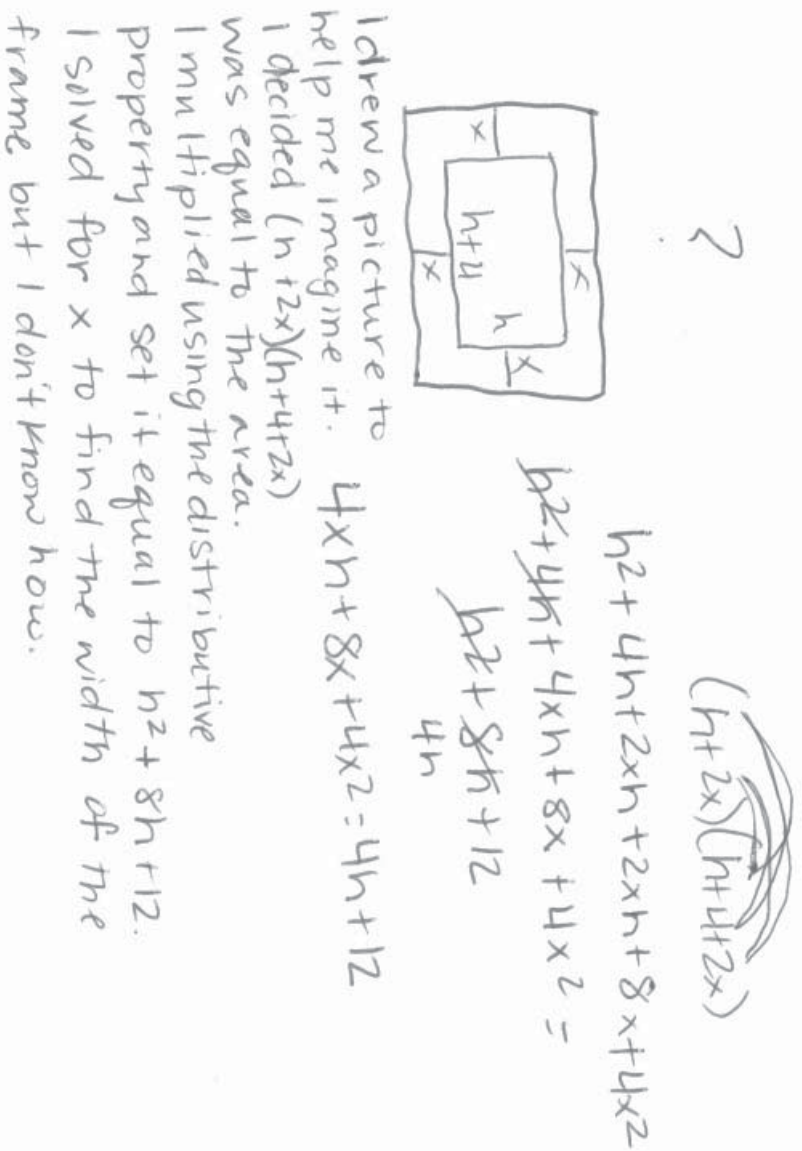 ?
(h+2x)(h+4+2x)
h²+4h+2xh+2xh+8x+4x²
h²+4h+4xh+8x+4x²=
h²+8h+12
4h
4xh+8x+4x²=4h+12
x
x
h
x
h+4
x
I drew a picture to
help me imagine it.
I decided (h+2x)(h+4+2x)
was equal to the area.
I multiplied using the distributive
property and set it equal to h²+8h+12.
I solved for x to find the width of the
frame but I don't know how.